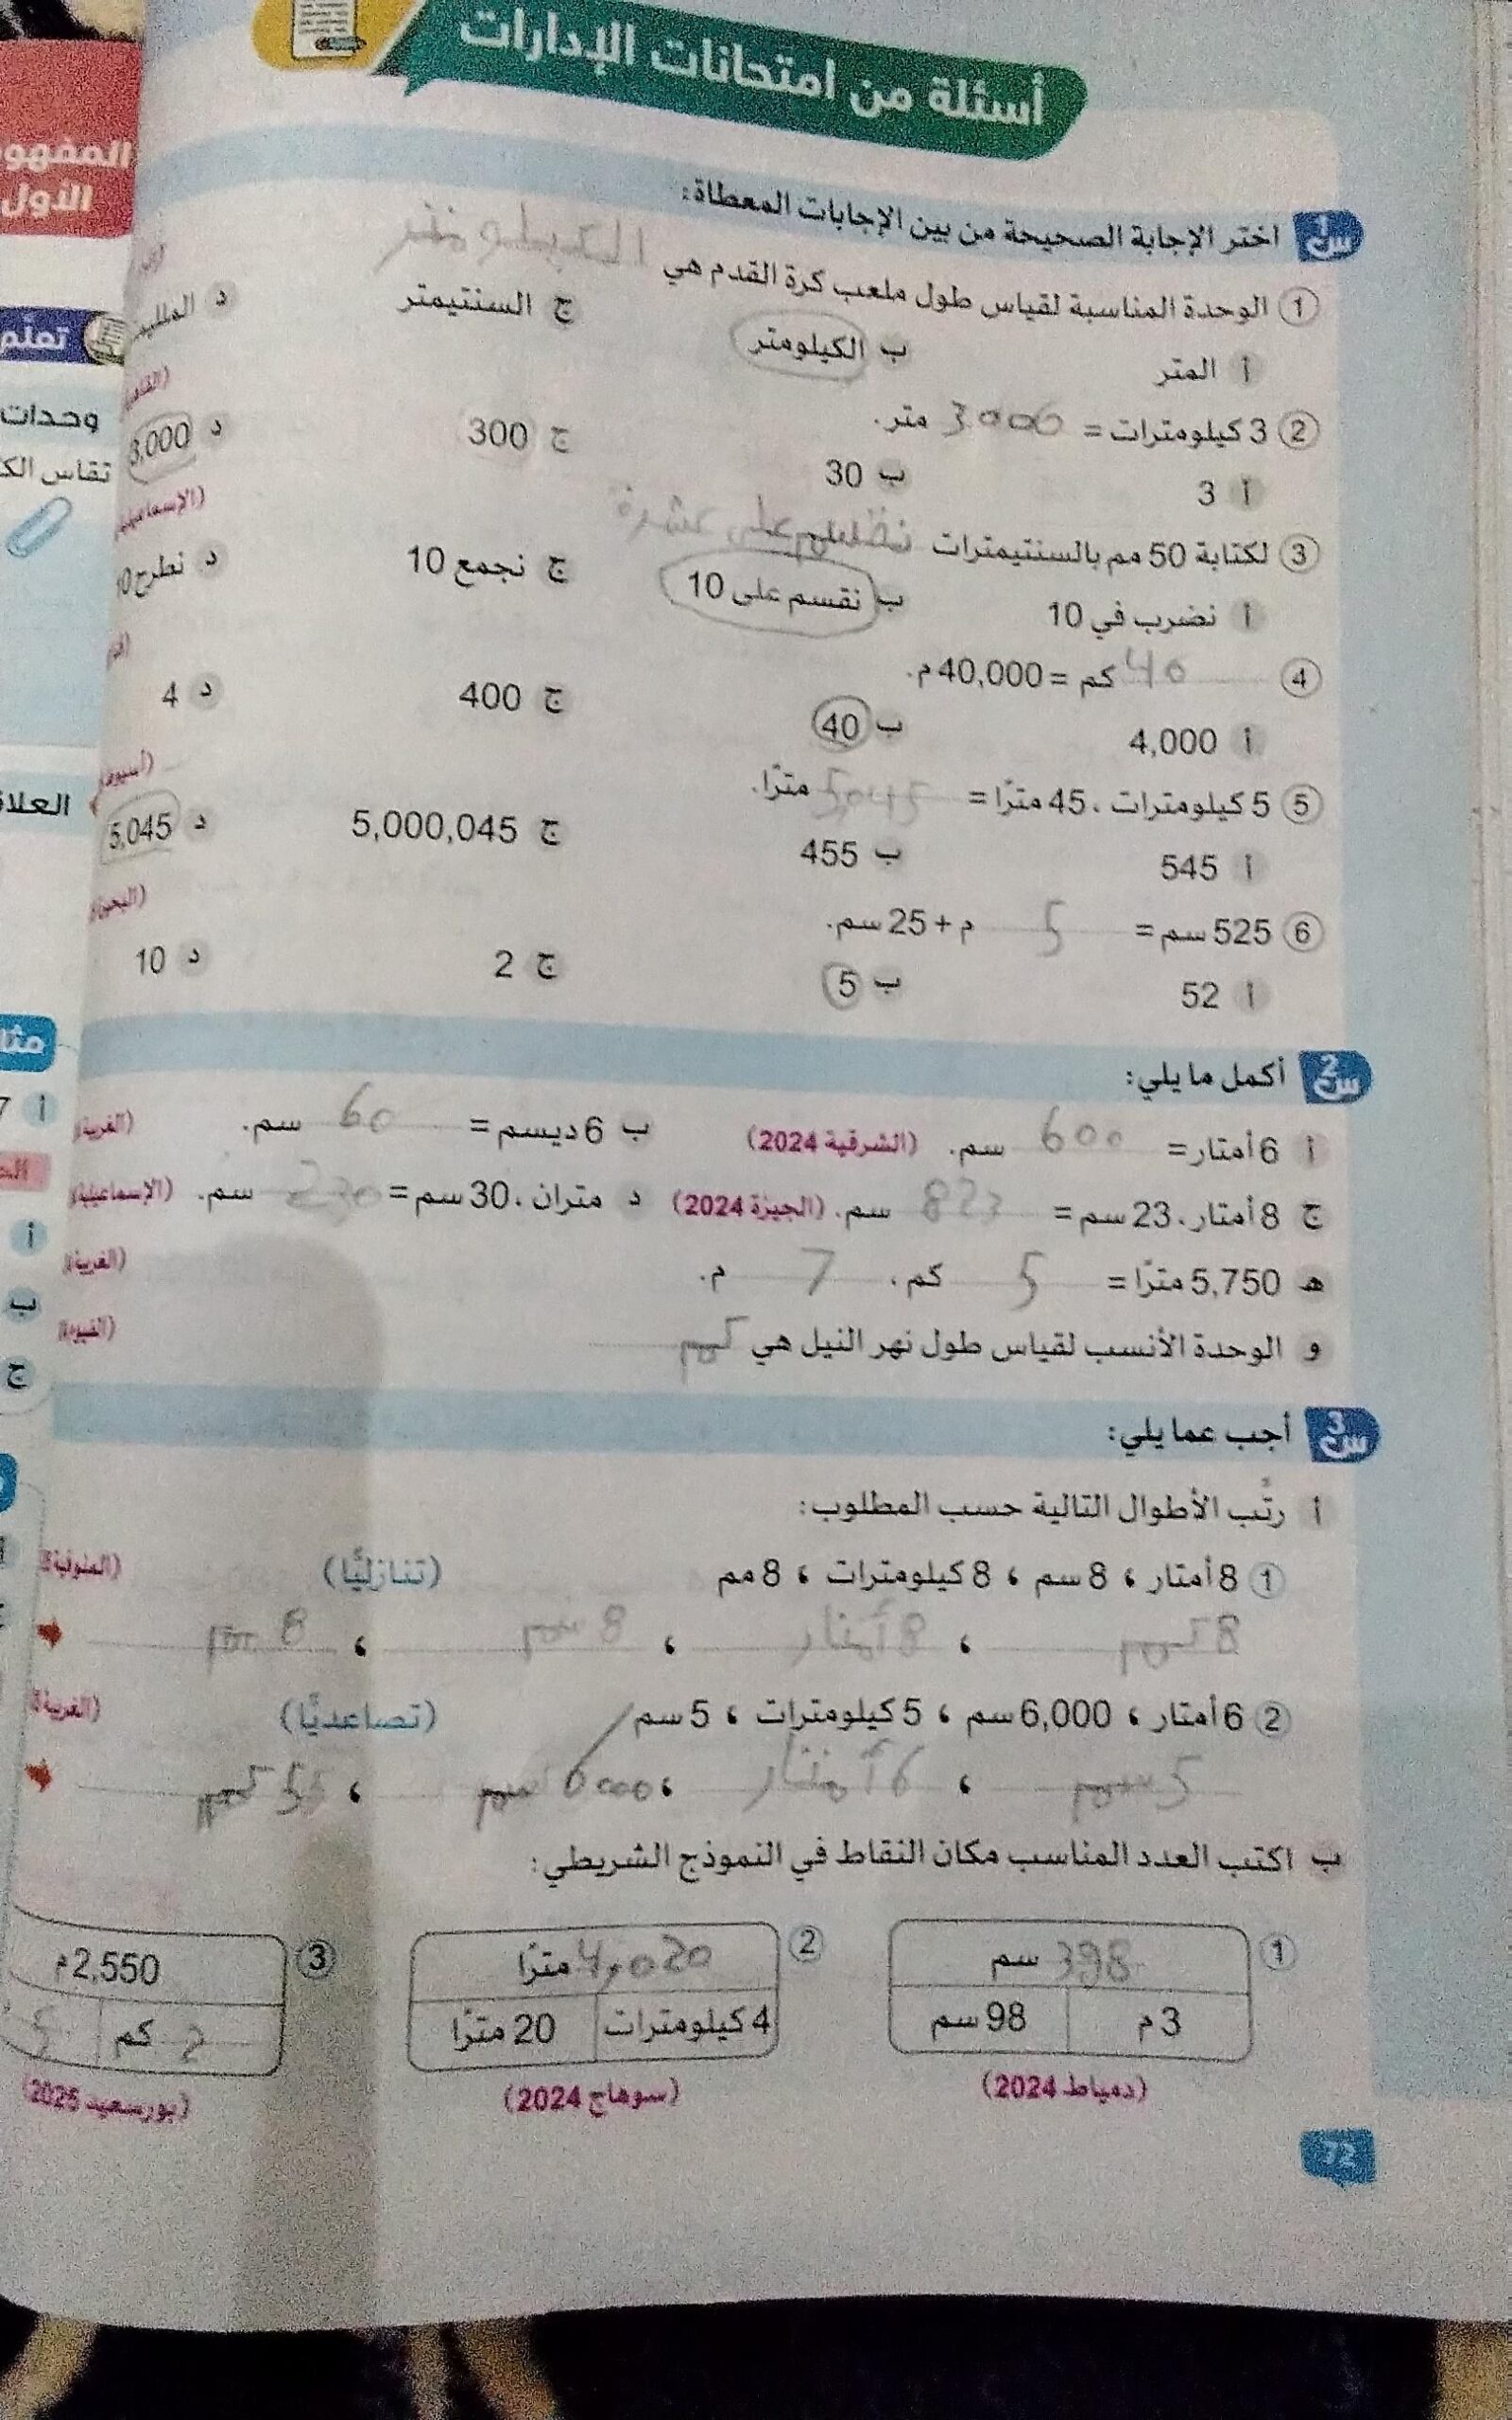 أسئلة من امتحانات الإدارات
المفهوم
الأول
تعلم
وحدات
تقاس الك
العلا
س1 اختر الإجابة الصحيحة من بين الإجابات المعطاة:
1 الوحدة المناسبة لقياس طول ملعب كرة القدم هي الكيلومتر
أ المتر ب الكيلومتر ج السنتيمتر د الملليم
2 3 كيلومترات = 3000 متر.
أ 3 ب 30 ج 300 د 3,000
3 لكتابة 50 مم بالسنتيمترات نقسم على عشرة
أ نضرب في 10 ب نقسم على 10 ج نجمع 10 د نطرح 10
4 40 كم = 40,000 م.
أ 4,000 ب 40 ج 400 د 4
5 5 كيلومترات ، 45 مترًا = 5,045 مترًا.
أ 545 ب 455 ج 5,000,045 د 5,045
6 525 سم = 5 م + 25 سم.
أ 52 ب 5 ج 2 د 10
س2 أكمل ما يلي:
أ 6 أمتار = 600 سم. (الشرقية 2024) ب 6 ديسم = 60 سم. (الغربية
ج 8 أمتار ، 23 سم = 823 سم. (الجيزة 2024) د متران ، 30 سم = 230 سم. (الإسماعيلية
هـ 5,750 مترًا = 5 كم ، 7 م. (الغربية
و الوحدة الأنسب لقياس طول نهر النيل هي كم (الفيوم
س3 أجب عما يلي:
أ رتّب الأطوال التالية حسب المطلوب:
1 8 أمتار ، 8 سم ، 8 كيلومترات ، 8 مم (تنازليًّا) (المنوفية
8 كم ، 8 أمتار ، 8 سم ، 8 مم
2 6 أمتار ، 6,000 سم ، 5 كيلومترات ، 5 سم (تصاعديًّا) (الغربية
5 سم ، 6 أمتار ، 6000 سم ، 5 كم
ب اكتب العدد المناسب مكان النقاط في النموذج الشريطي:
1 398 سم
3 م 98 سم
(دمياط 2024)
2 4,020 مترًا
4 كيلومترات 20 مترًا
(سوهاج 2024)
3 2,550 م
2 كم 5
(بورسعيد 2025)
72